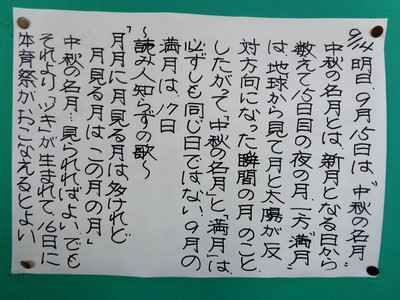 9/14 明日、9月15日は、“中秋の名月”
中秋の名月とは、新月となる日から
数えて15日目の夜の月、一方“満月”
は、地球から見て月と太陽が反
対方向になった瞬間の月のこと
したがって「中秋の名月」と「満月」は、
必ずしも同じ日ではない、9月の
満月は、17日
〜読み人知らずの歌〜
「月月に月見る月は多けれど
月見る月は、この月の月」
中秋の名月…見られればよい、でも
それより、“ツキ”が生まれて、16日に
体育祭がおこなえるとよい